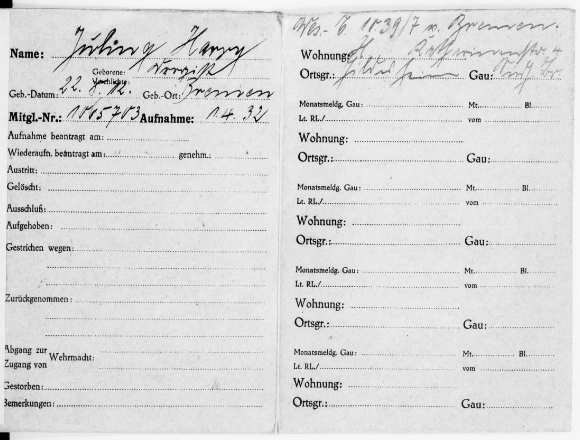 Name: Jüling Harry
Geborene:
Verehelichte:
Geb.-Datum: 22. 8. 12. Geb.-Ort: Bremen
Mitgl.-Nr.: 1005703 Aufnahme: 1. 4. 32
Aufnahme beantragt am:
Wiederaufn. beantragt am: genehm.:
Austritt:
Gelöscht:
Ausschluß:
Aufgehoben:
Gestrichen wegen:
Zurückgenommen:
Abgang zur
Zugang von
Wehrmacht:
Gestorben:
Bemerkungen:
10.39/7 v. Bremen.
Wohnung: 4
Ortsgr.: Hildesheim Gau: Süd
Monatsmeldg. Gau: Mt. Bl.
Lt. RL./ vom
Wohnung:
Ortsgr.: Gau:
Monatsmeldg. Gau: Mt. Bl.
Lt. RL./ vom
Wohnung:
Ortsgr.: Gau:
Monatsmeldg. Gau: Mt. Bl.
Lt. RL./ vom
Wohnung:
Ortsgr.: Gau:
Monatsmeldg. Gau: Mt. Bl.
Lt. RL./ vom
Wohnung:
Ortsgr.: Gau: